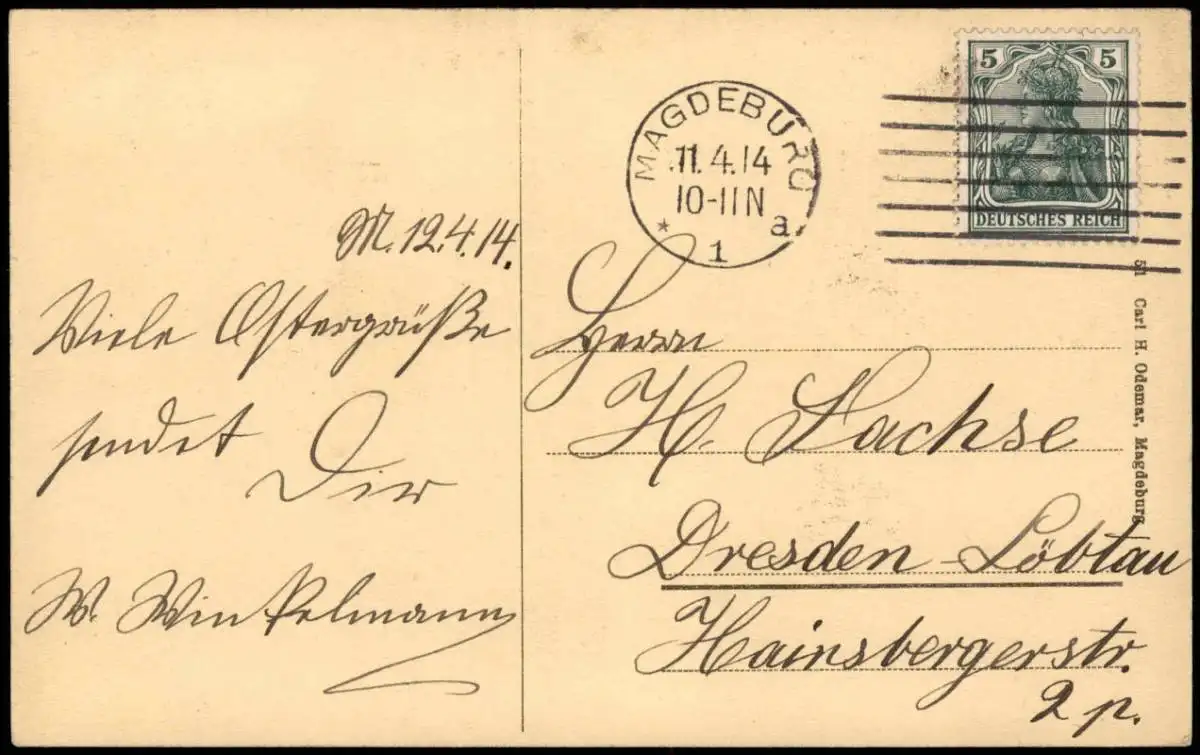 M. 12.4.14.
Viele Ostergrüße
sendet
Dir
W. Winkelmann
MAGDEBURG
11.4.14
10-11N
* 1 a
5 5
DEUTSCHES REICH
Herrn
H. Sachse
Dresden-Löbtau
Hainsbergerstr.
2 p.
51 Carl H. Odemar, Magdeburg